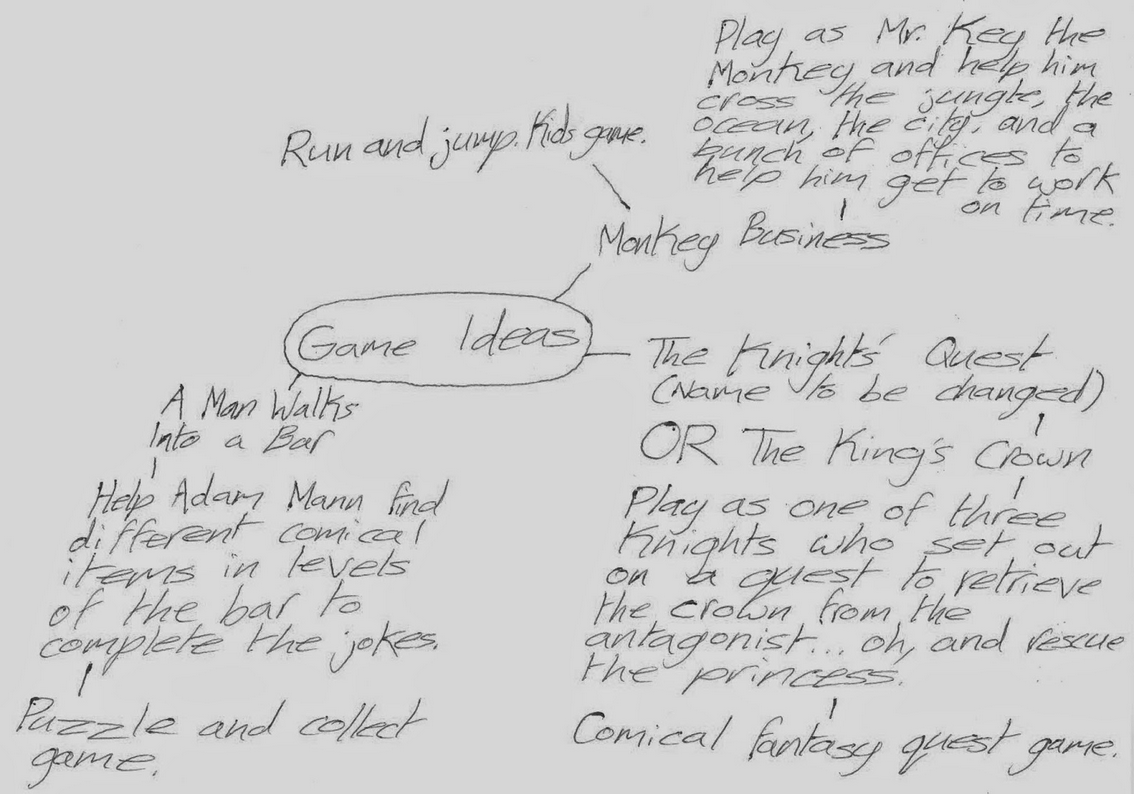 Play as Mr. Key the
Monkey and help him
cross the jungle, the
ocean, the city, and a
bunch of offices to
help him get to work
on time.
Run and jump. Kids game.
Monkey Business
Game Ideas
The Knights' Quest
(Name to be changed)
OR The King's Crown
Play as one of three
Knights who set out
on a quest to retrieve
the crown from the
antagonist... oh, and rescue
the princess.
Comical fantasy quest game.
A Man Walks
Into a Bar
Help Adam Mann find
different comical
items in levels
of the bar to
complete the jokes.
Puzzle and collect
game.